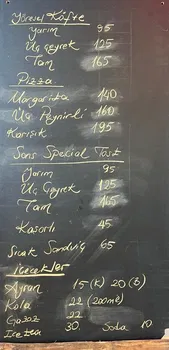 Yöresel Köfte
Yarım 95
Üç çeyrek 125
Tam 165
Pizza
Margarita 140
Üç Peynirli 160
Karışık 195
Sans Special Tost
Yarım 95
Üç Çeyrek 125
Tam 165
Kaşarlı 45
Sıcak Sandviç 65
İçecekler
Ayran 15 (K) 20 (B)
Kola 22 (200ml)
Gazoz 22
Ice tea 30 Soda 10